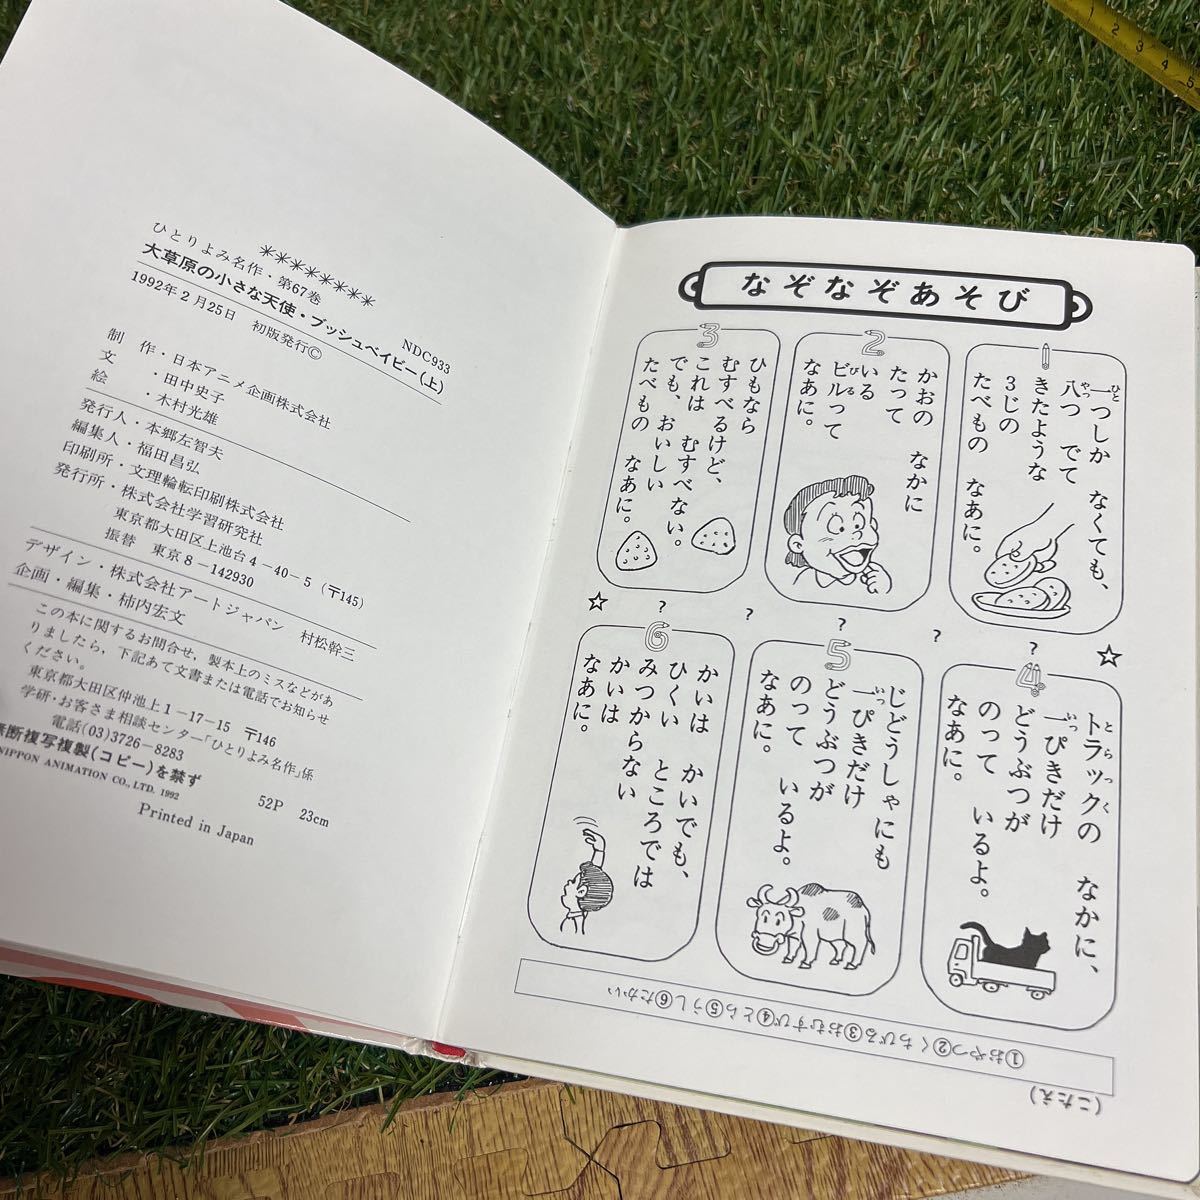 ＊＊＊＊＊＊＊＊
ひとりよみ名作・第67巻
大草原の小さな天使・ブッシュベイビー(上)
1992年2月25日　初版発行©　NDC933
制　作・日本アニメ企画株式会社
文　・田中史子
絵　・木村光雄
発行人・本郷左智夫
編集人・福田昌弘
印刷所・文理輪転印刷株式会社
発行所・株式会社学習研究社
東京都大田区上池台4-40-5(〒145)
振替　東京8-142930
デザイン・株式会社アートジャパン　村松幹三
企画・編集・柿内宏文
この本に関するお問合せ，製本上のミスなどがあ
りましたら，下記あて文書または電話でお知らせ
ください。
東京都大田区仲池上1-17-15　〒146
学研・お客さま相談センター「ひとりよみ名作」係
電話(03)3726-8283
無断複写複製(コピー)を禁ず
NIPPON ANIMATION CO., LTD. 1992
52P　23cm
Printed in Japan
なぞなぞあそび
1
一つしか　なくても、
ひと
八つ　でて
やっ
きたような
3じの
たべもの　なあに。
2
かおの　なかに
たって
いる
ビルって
びる
なあに。
3
ひもなら
むすべるけど、
これは　むすべない。
でも、おいしい
たべもの　なあに。
4
トラックの　なかに、
とらっく
一ぴきだけ
いっ
どうぶつが
のって　いるよ。
なあに。
5
じどうしゃにも
一ぴきだけ
いっ
どうぶつが
のって　いるよ。
なあに。
6
かいは　かいでも、
ひくい　ところでは
みつからない
かいは
なあに。
？
？
？
？
？
(こたえ)
①おやつ②くちびる③おむすび④とら⑤うし⑥たかい
1 2 3 4 5